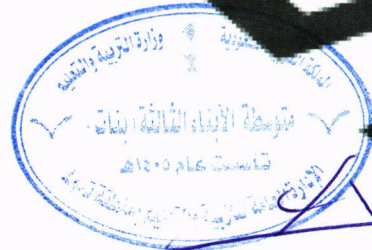 المملكة العربية السعودية
وزارة التربية والتعليم
متوسطة الأبناء الثالثة بنات
تأسست عام ١٤٠٥هـ
الإدارة العامة للتربية والتعليم بمنطقة